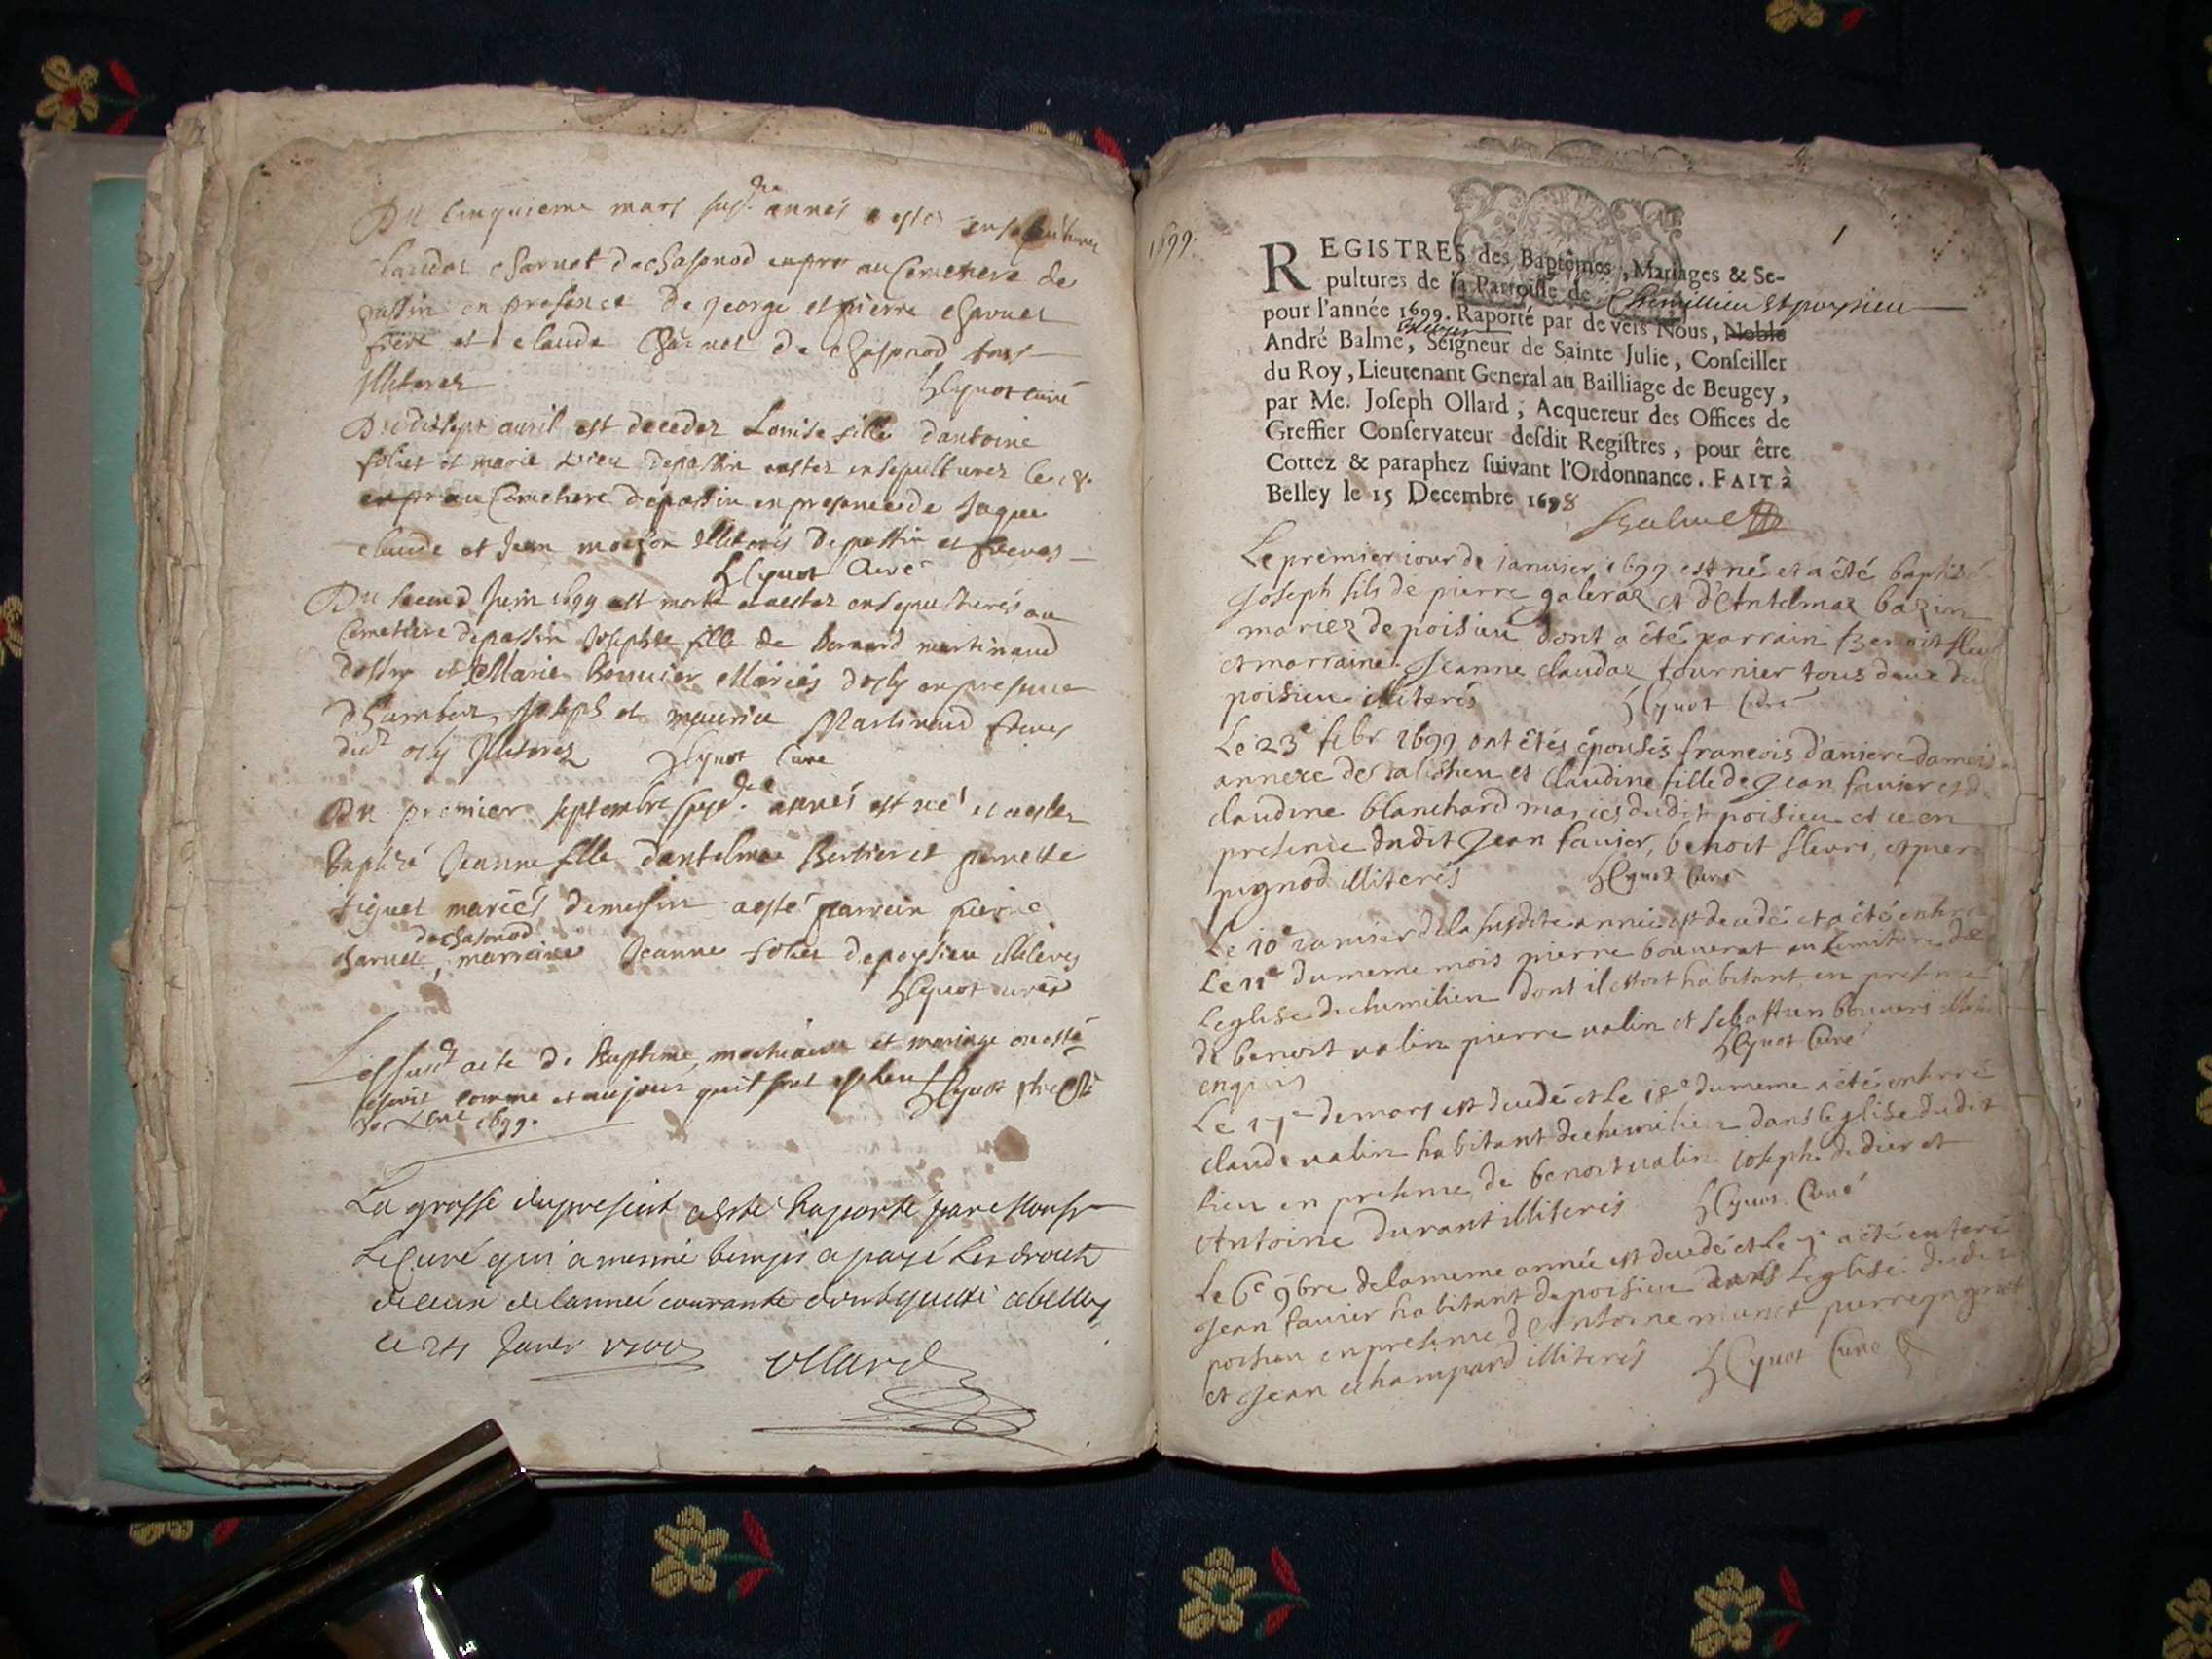 Du cinquieme mars susd. année a estes ensepulturer
claudaz charuet de chasonod au Cemetiere de
passin en presence de george et pierre charuet
frere et claude Charuet de chasonod tous
Illiterez Hyquot curé
Du disept auril est decedez Louise fille dantoine
foliet et marie depassin ensepulturez le 18.
au Cemetiere depassin en presence de Jaque
claude et Jean Illiterés de passin et freres
Hyquot Curé
Du second Juin 1699 est morte et aestez ensepulturés au
Cemetiere depassin Josephte fille de Bernard martinaud
et Marie Bonnier Mariés en presence
Joseph et maurice Martinaud freres
Illiterez Hyquot Cure
Du premier septembre susd. année est né et aestez
Baptizé Jeanne fille dantelmoz Bertier et pernette
mariés demessin aesté parrein pierre
de chasonod
charuet, marreine Jeanne foliet depoysieu illiterez
Hyquot curés
Les susd acte de Baptême, et mariage on esté
comme et aujour quil sont Hyquot
1699.
La grosse du present aesté raporté par Monsr
Le Curé qui a mesme temps a payé Les droits
diceux de lannée courante dont quitté abelley
ce 24 Janer 1700 Ollard
1699. 1
REGISTRES des Baptêmes, Mariages & Se-
pultures de la Parroisse de Chemillieu et poysieu
pour l'année 1699. Raporté par devers Nous, Noble
André Balme, Seigneur de Sainte Julie, Conseiller
du Roy, Lieutenant General au Bailliage de Beugey,
par Me. Joseph Ollard, Acquereur des Offices de
Greffier Conservateur desdit Registres, pour être
Cottez & paraphez suivant l'Ordonnance. FAIT à
Belley le 15 Decembre 1698
Balme
Le premier iour de ianuier 1699 est né et a été baptisé
Joseph fils de pierre galeraz et d'Antelmaz bazin
mariez de poisieu dont a été parrain Benoist
et marraine Jeanne claudaz fournier tous deux du
poisieu illiterés Hyquot Curé
Le 23e febr 1699 ont étés épousés francois d'aniere
annexe de et Claudine fille de Jean fauier et de
claudine blanchard mariés dudit poisieu et ce en
presence dudit Jean fauier, benoit fleuri, et pierre
pignod illiterés Hyquot Curé
Le 10e ianuier de la susdite année est decedé et a été enterré
Le 11e du meme mois pierre bouuerat au Cemitiere de
Leglise de chemilieu dont il estoit habitant en presence
de benoit valin pierre valin et sebastien bouuerat
enquis Hyquot Curé
Le 17e de mars est decedé et Le 18e du meme a été enterré
claude valin habitant de chemilieu dans Leglise dudit
lieu en presence de benoit valin ioseph didier et
Antoine durant illiterés Hyquot Curé
Le 6e 9bre de la meme année est decedé et Le 7e a été enteré
Jean fauier habitant de poisieu dans Leglise dudit
poisieu en presence d'Antoine et pierre pignod
et Jean champard illiterés Hyquot Curé